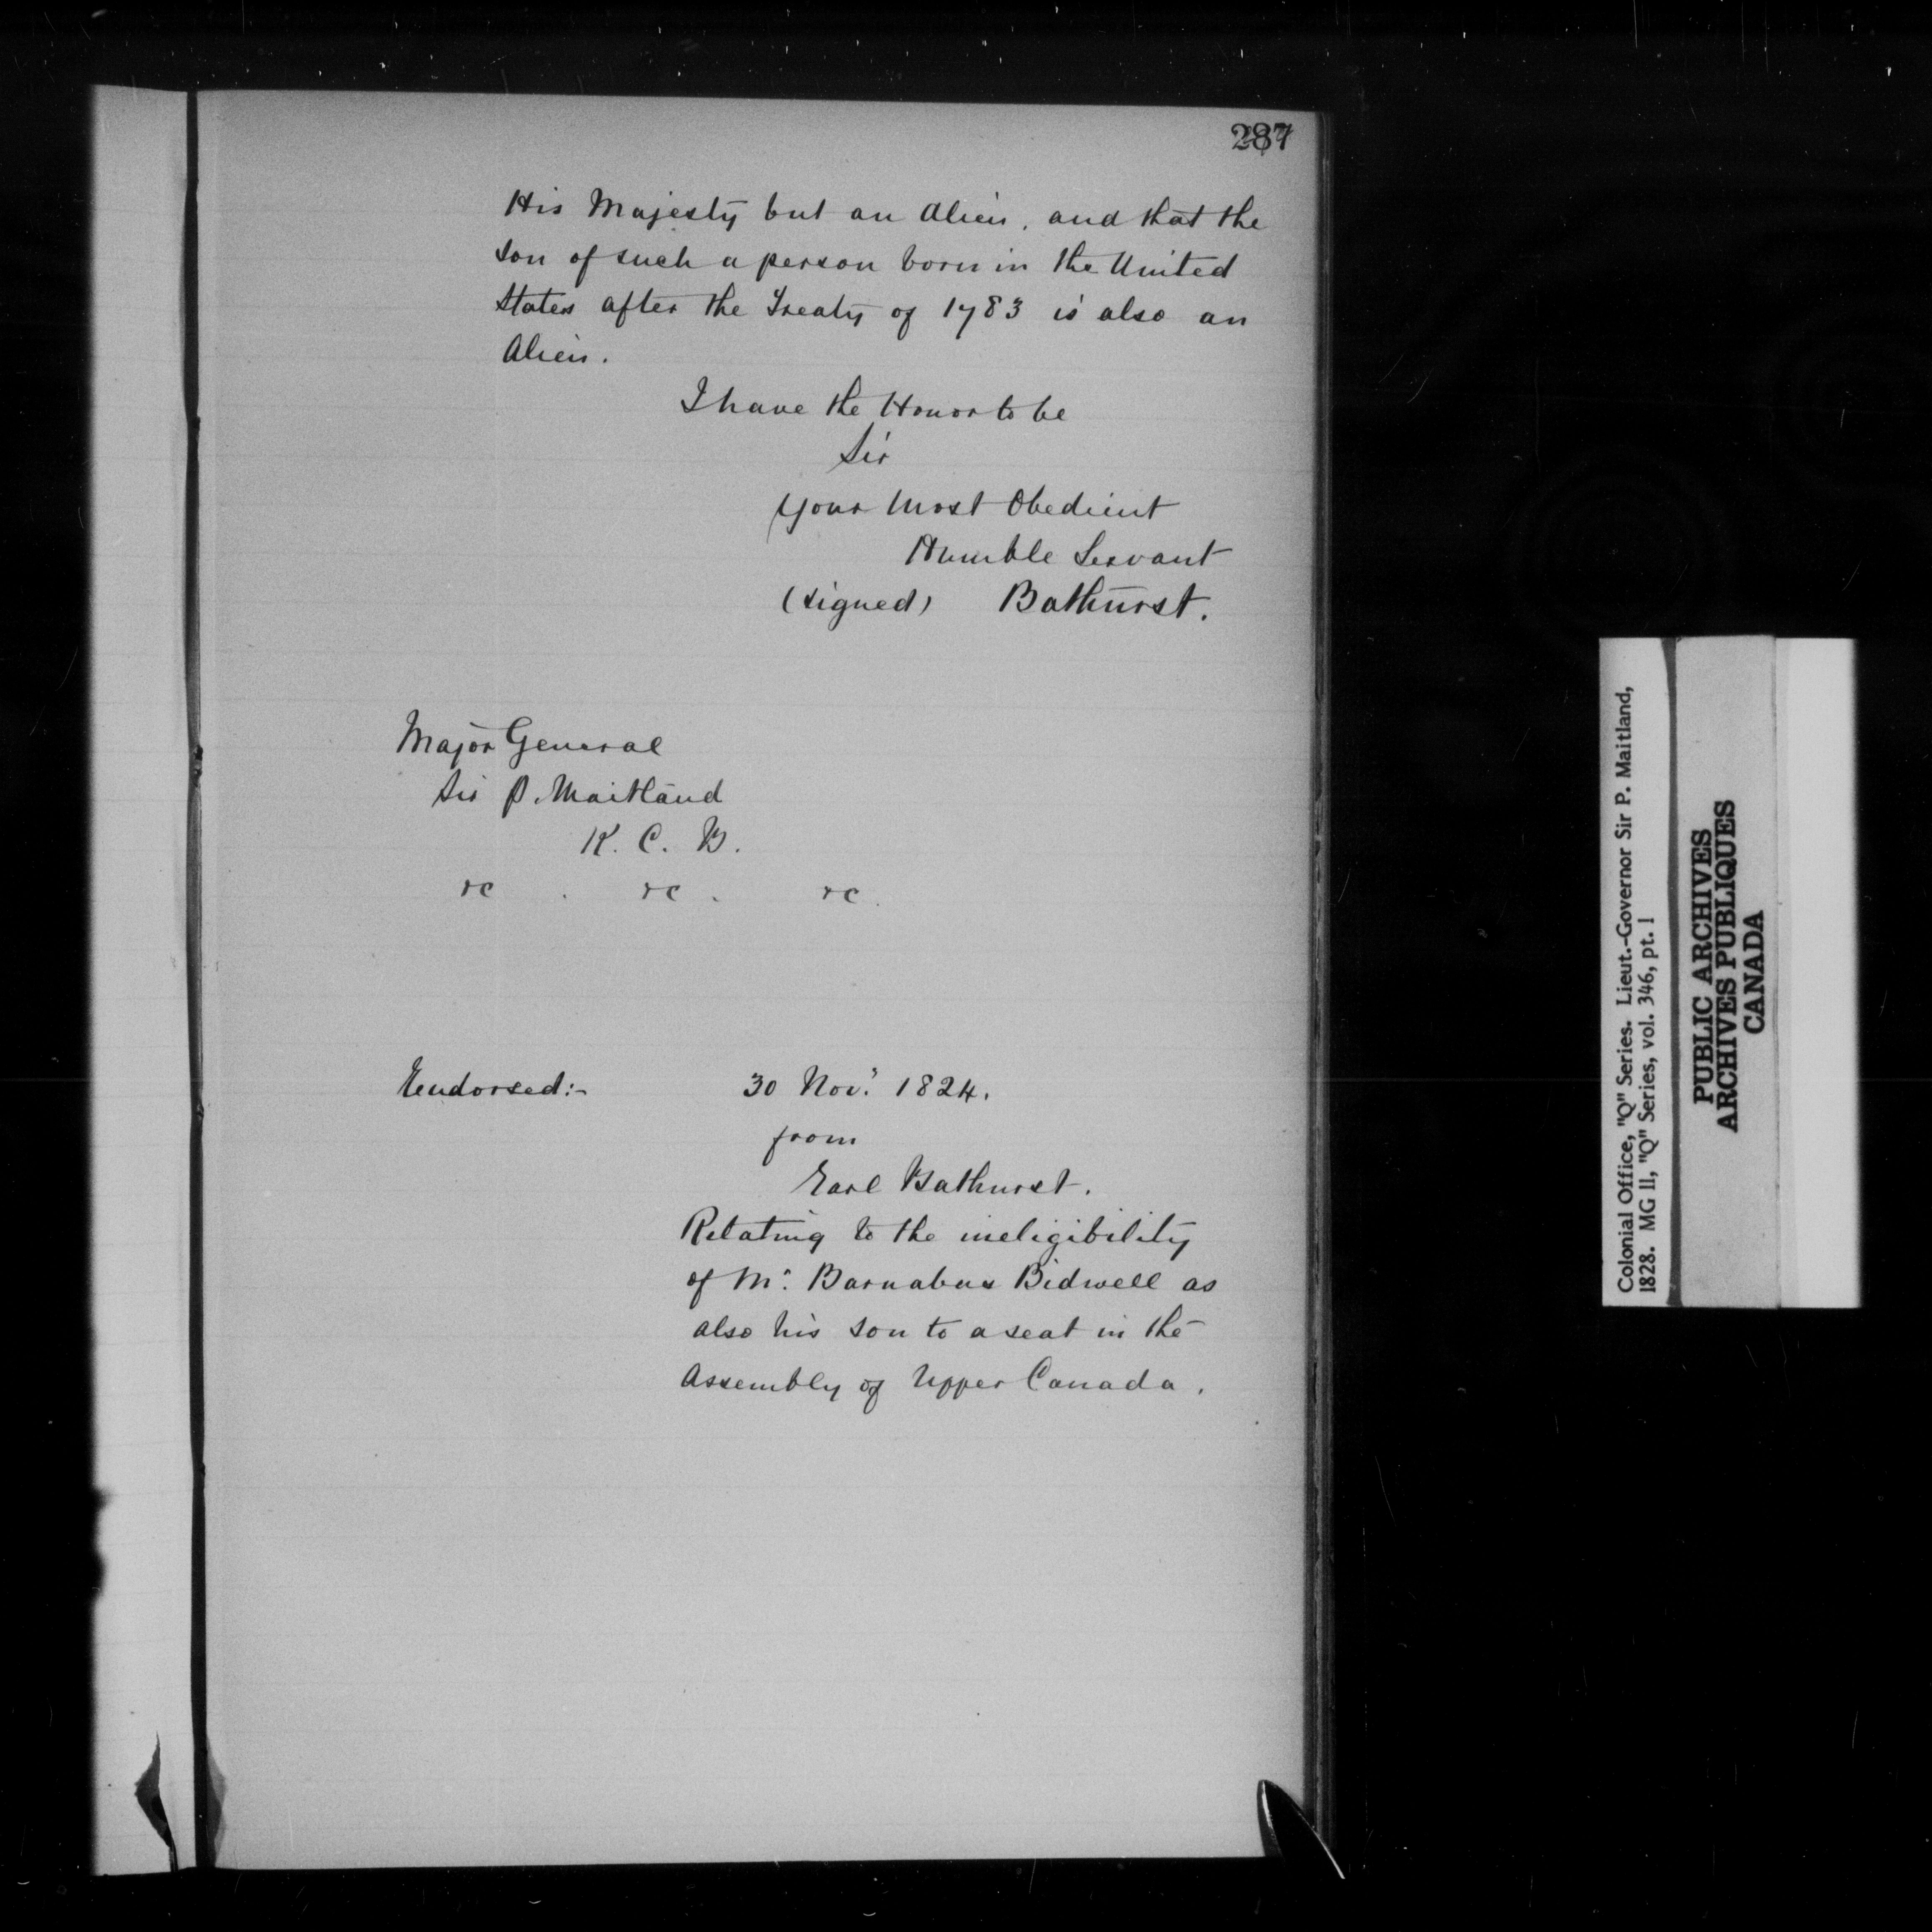 287
His Majesty but an Alien, and that the
son of such a person born in the United
States after the Treaty of 1783 is also an
Alien.
I have the Honor to be
Sir
Your Most Obedient
Humble Servant
(signed) Bathurst.
Major General
Sir P. Maitland
K. C. B.
&c . &c . &c .
Endorsed:- 30 Novr. 1824.
from
Earl Bathurst.
Relating to the ineligibility
of Mr. Barnabas Bidwell as
also his son to a seat in the
Assembly of Upper Canada.
Colonial Office, "Q" Series. Lieut.-Governor Sir P. Maitland,
1828. MG 11, "Q" Series, vol. 346, pt. 1
PUBLIC ARCHIVES
ARCHIVES PUBLIQUES
CANADA